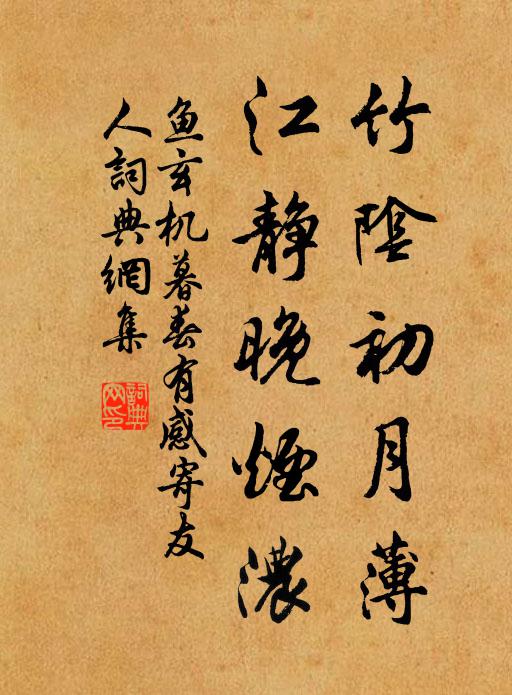 竹陰初月薄
江静晚煙濃
鱼玄机暮春有感寄友
人詞典網集
詞典网印